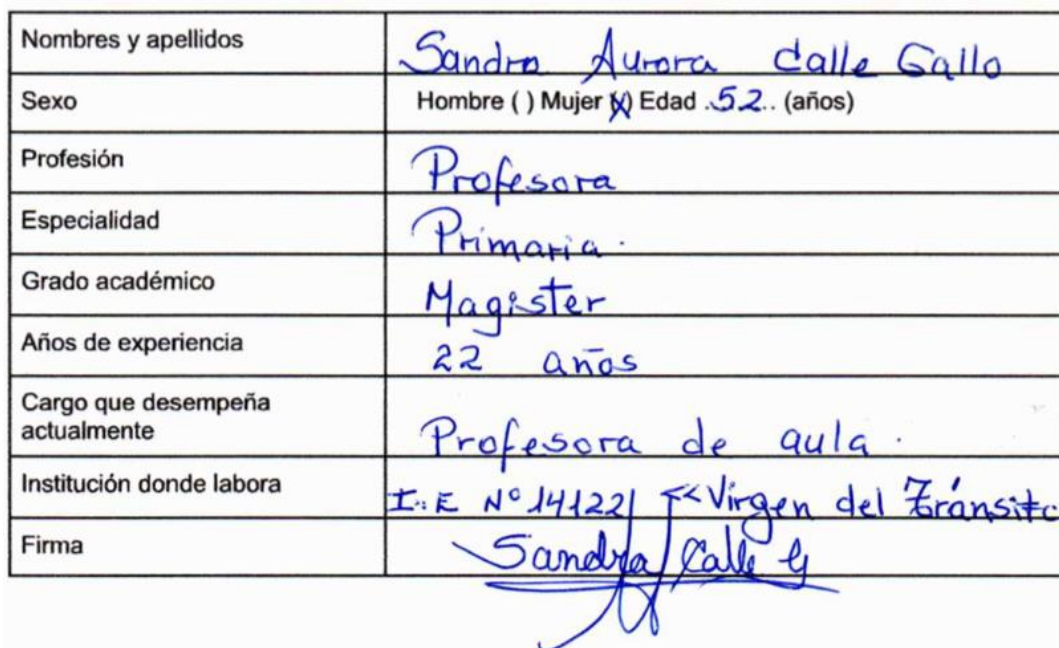 Nombres y apellidos Sandra Aurora Calle Gallo
Sexo Hombre ( ) Mujer (X) Edad .52.. (años)
Profesión Profesora
Especialidad Primaria.
Grado académico Magister
Años de experiencia 22 años
Cargo que desempeña
actualmente Profesora de aula.
Institución donde labora I.E N° 14122 <<Virgen del Tránsito
Firma Sandra Calle G